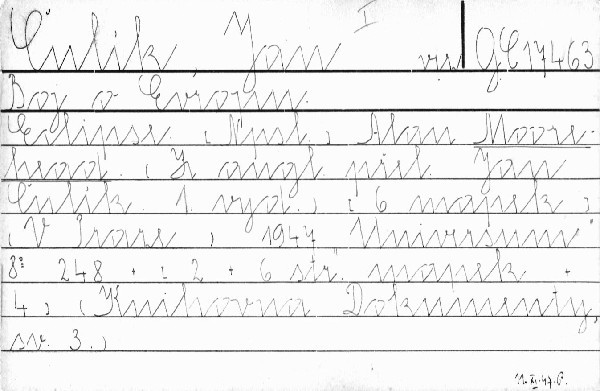 Čulík Jan I vs gC 17463
Boj o Evropu.
Eclipse. (Npsl.) Alan Moore-
head. (Z angl. přel. Jan
Čulík. 1. vyd.) (6 mapek)
(V Praze) 1947 Universum
8° 248 + (2 + 6 str. mapek +
4) (Knihovna Dokumenty,
sv. 3.)
11.XI.47.P.